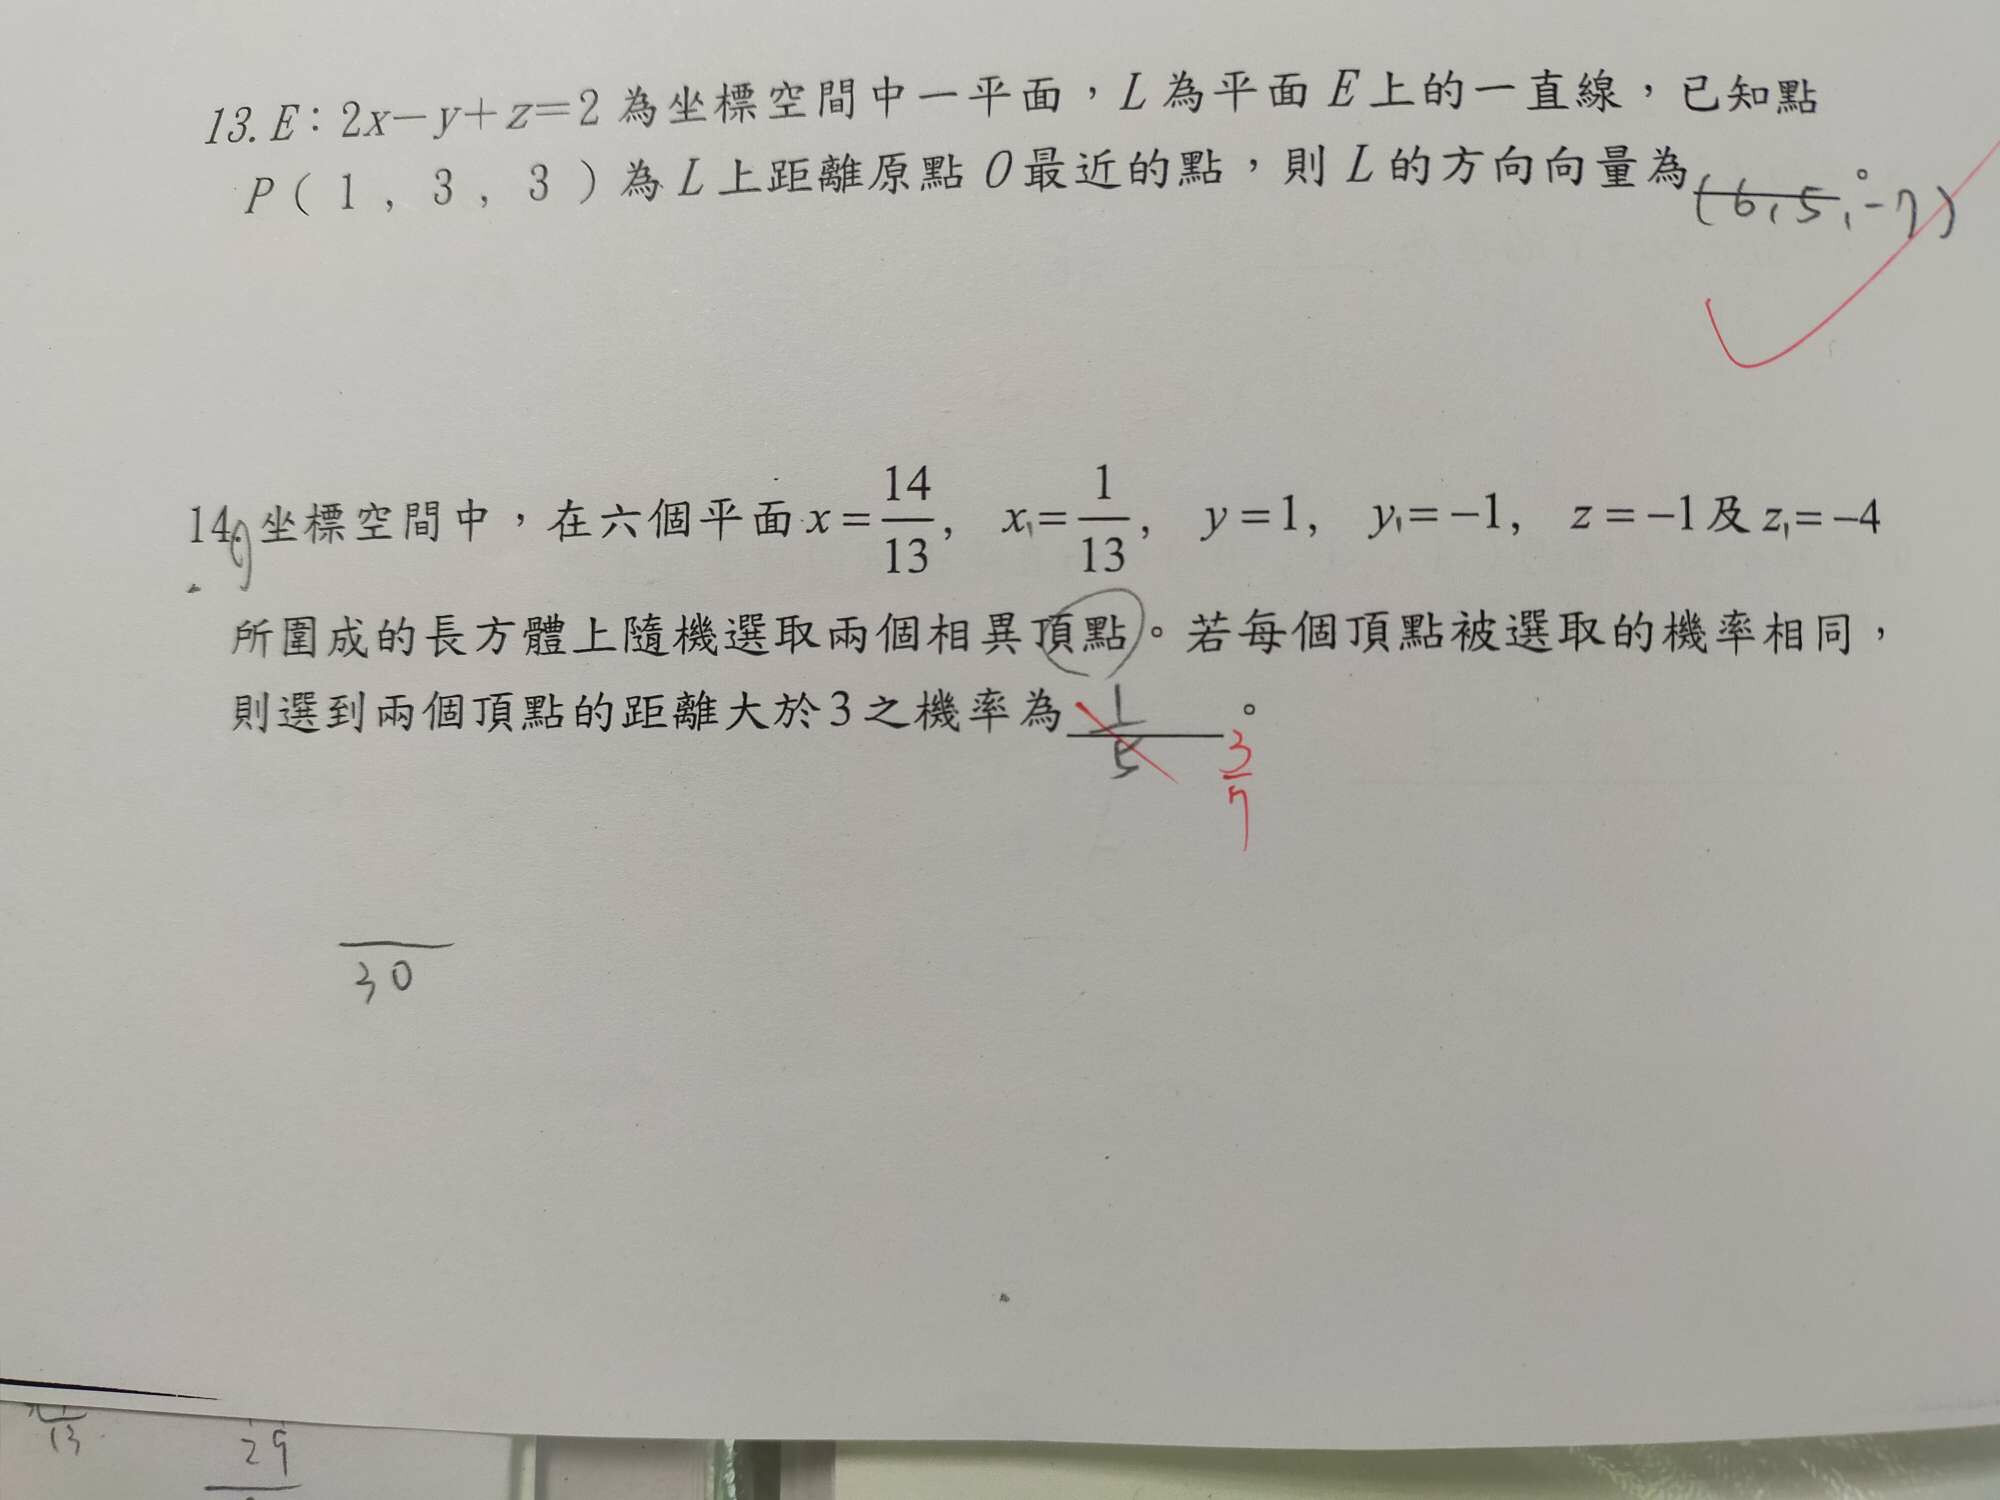 13. E：2x－y＋z＝2 為坐標空間中一平面，L 為平面 E 上的一直線，已知點
P（1，3，3）為 L 上距離原點 O 最近的點，則 L 的方向向量為(6,5,-7)。
14. 坐標空間中，在六個平面 x = 14/13, x₁= 1/13, y =1, y₁= -1, z = -1 及 z₁= -4
所圍成的長方體上隨機選取兩個相異頂點。若每個頂點被選取的機率相同，
則選到兩個頂點的距離大於3之機率為 1/5 。
3/7
30
13
29